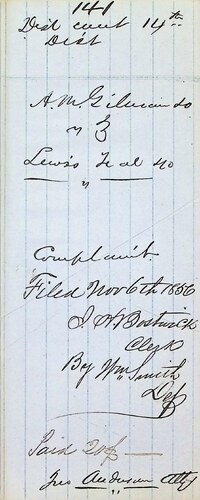 141
Dist court 14th
Dist
A. M. Gilman
vs
Lewis et al
"
Complaint
Filed Nov 6th 1856
J H Bostwick
Clerk
By Wm Smith
Dep
Paid
Jno Anderson Atty